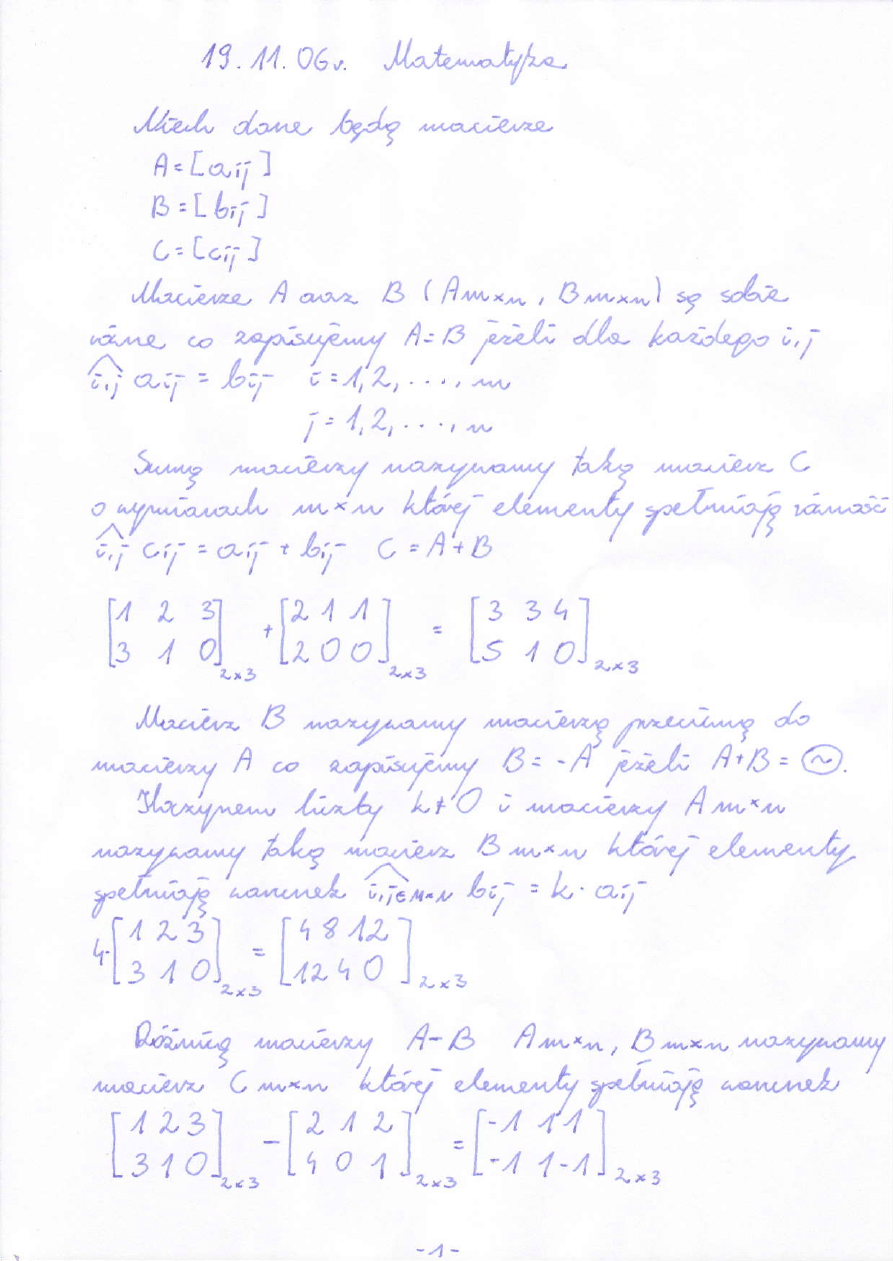 19.11.06r. Matematyka
Niech dane będą macierze
A=[aij]
B=[bij]
C=[cij]
Macierze A oraz B (Am×n, Bm×n) są sobie
równe co zapisujemy A=B jeżeli dla każdego i,j
i,j aij = bij i=1,2,...,m
j=1,2,...,n
Sumą macierzy nazywamy taką macierz C
o wymiarach m×n której elementy spełniają równość
i,j cij = aij + bij C=A+B
[1 2 3] + [2 1 1] = [3 3 4]
[3 1 0]2×3 [2 0 0]2×3 [5 1 0]2×3
Macierz B nazywamy macierzą przeciwną do
macierzy A co zapisujemy B=-A jeżeli A+B=⊝.
Iloczynem liczby k≠0 i macierzy Am×n
nazywamy taką macierz Bm×n której elementy
spełniają warunek i,j∈M×N bij = k·aij
4·[1 2 3] = [4 8 12]
[3 1 0]2×3 [12 4 0]2×3
Różnicą macierzy A-B Am×n, Bm×n nazywamy
macierz Cm×n której elementy spełniają warunek
[1 2 3] - [2 1 2] = [-1 1 1]
[3 1 0]2×3 [4 0 1]2×3 [-1 1 -1]2×3
-1-